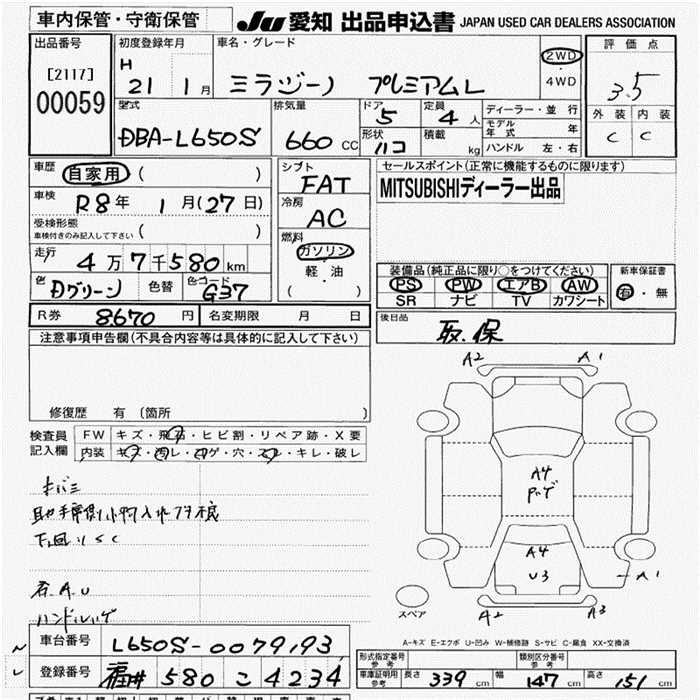 車内保管・守衛保管
JU 愛知 出品申込書 JAPAN USED CAR DEALERS ASSOCIATION
出品番号
[2117]
00059
初度登録年月
H 21 年 1 月
車名・グレード
ミラジーノ プレミアムL
2WD
・
4WD
評価点
3.5
外装 内装
C C
型式
DBA-L650S
排気量
660 CC
ドア
5
定員
4 人
形状
ハコ
積載
kg
ディーラー・並行
モデル年式 年
ハンドル 左・右
車歴
自家用 ( )
車検
R8年 1月(27日)
受検形態
車検付きのみ記入して下さい ( )
走行
4万7千580km
色
Dグリーン
色替
色コード
G37
シフト
FAT
冷房
AC
燃料
ガソリン
・
軽・油
( )
セールスポイント(正常に機能するものに限ります)
MITSUBISHIディーラー出品
装備品(純正品に限り○をつけてください)
PS PW エアB AW
SR ナビ TV カワシート
新車保証書
有・無
R券 8670 円
名変期限 月 日
後日品
取.保
注意事項申告欄(不具合内容等は具体的に記入して下さい)
修復歴 有 (箇所 )
検査員
記入欄
FW キズ・飛石・ヒビ割・リペア跡・X要
内装 キズ・汚レ・コゲ・穴・スレ・キレ・破レ
キバミ
下回りSC
ハンドルハゲ
A2 A1
A4
A4
U3
A1
A2 A3
スペア
A-キズ E-エクボ U-凹み W-補修跡 S-サビ C-腐食 XX-交換済
車台番号
L650S-0079193
登録番号
福井 580 こ 4234
形式指定番号
参考
類別区分番号
参考
車庫証明用
参考
長さ 339 cm
幅 147 cm
高さ 151 cm